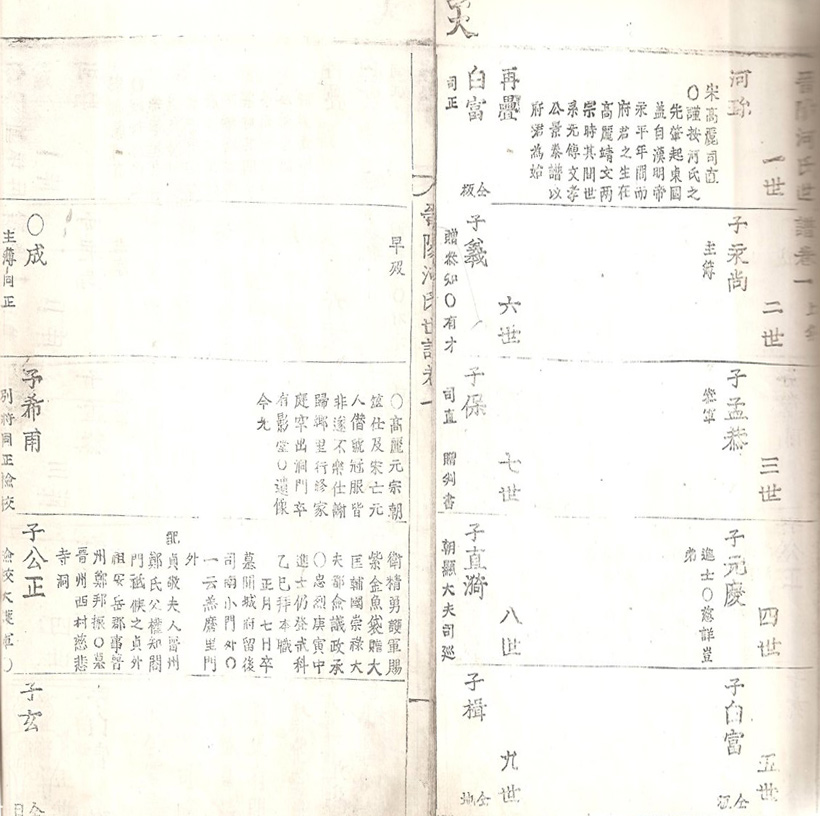 晉陽河氏世譜卷一
一世
河珍
宋高麗司直
○謹按河氏之
先肇起東國
蓋自漢明帝
永平年間而
府君之生在
高麗靖文兩
宗時其間世
系无傳文孝
公景參譜以
府君為始
二世
子永尚
主簿
三世
子孟恭
叅軍
四世
子元慶
進士○慈詳豈
弟
五世
子白富
再疊
白富
司正
六世
子羲
贈叅知○有才
七世
子保
司直 贈判書
八世
子直漪
朝顯大夫司巡
九世
子楫
晉陽河氏世譜卷一
早歿
○成
主簿同正
○高麗元宗朝
筮仕及宋亡元
人僭號冠服皆
非遂不樂仕
歸鄉里行修家
庭卒出洞門卒
有影堂○遺像
今尤
子希甫
別將同正檢校
衛精勇護軍賜
紫金魚袋贈大
匡輔國崇祿大
夫都僉議政丞
○忠烈庚寅中
進士仍登武科
乙巳拜本職
正月七日卒
墓開城府留後
司南小門外○
一云善席里門
外
配貞敬夫人晉州
鄭氏父權知閤
門祗候之貞外
祖安岳郡事晉
州鄭邦振○墓
晉州西村慈悲
寺洞
子公正
子玄